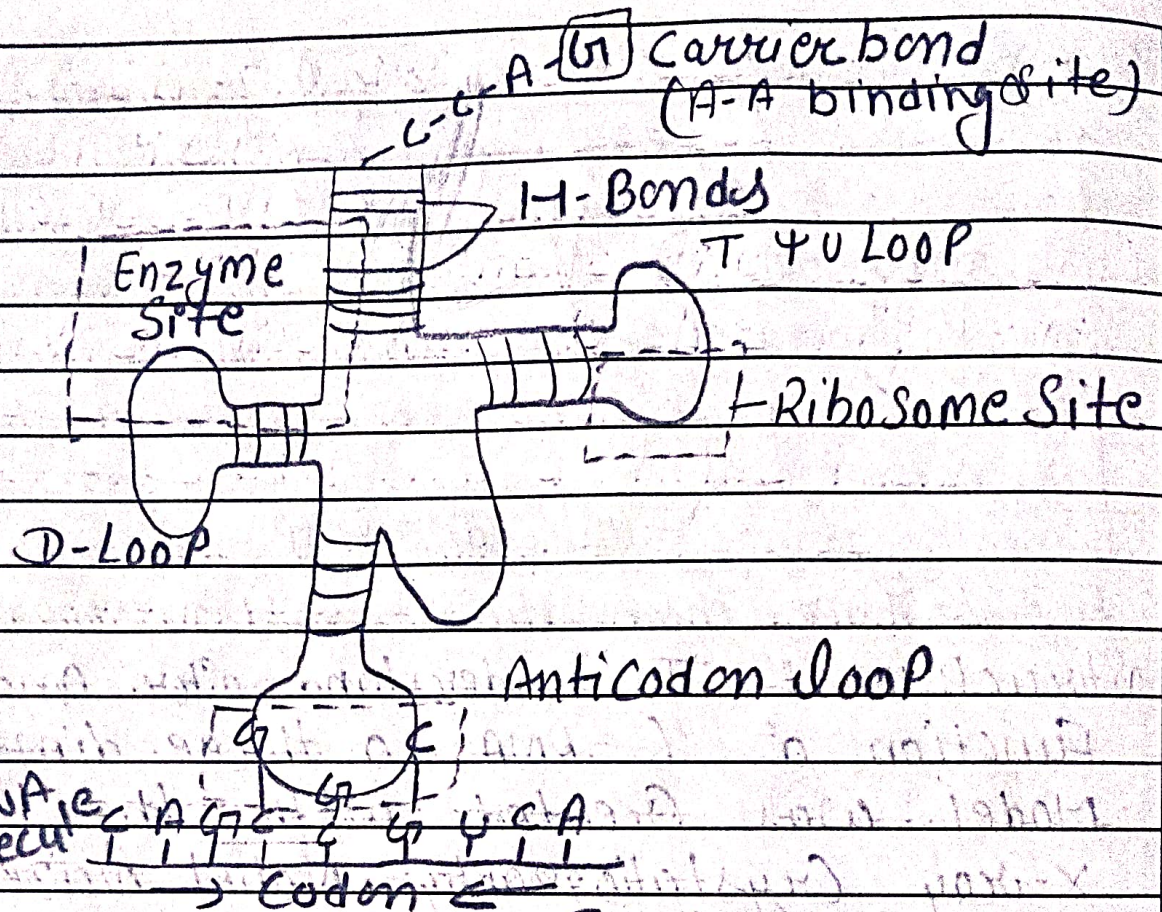 C-C-A-G Carrier bond
(A-A binding site)
H-Bonds
T Ψ U LOOP
Enzyme
Site
Ribosome Site
D-LOOP
Anticodon loop
G C
G
C A G C C G U C A
Codon